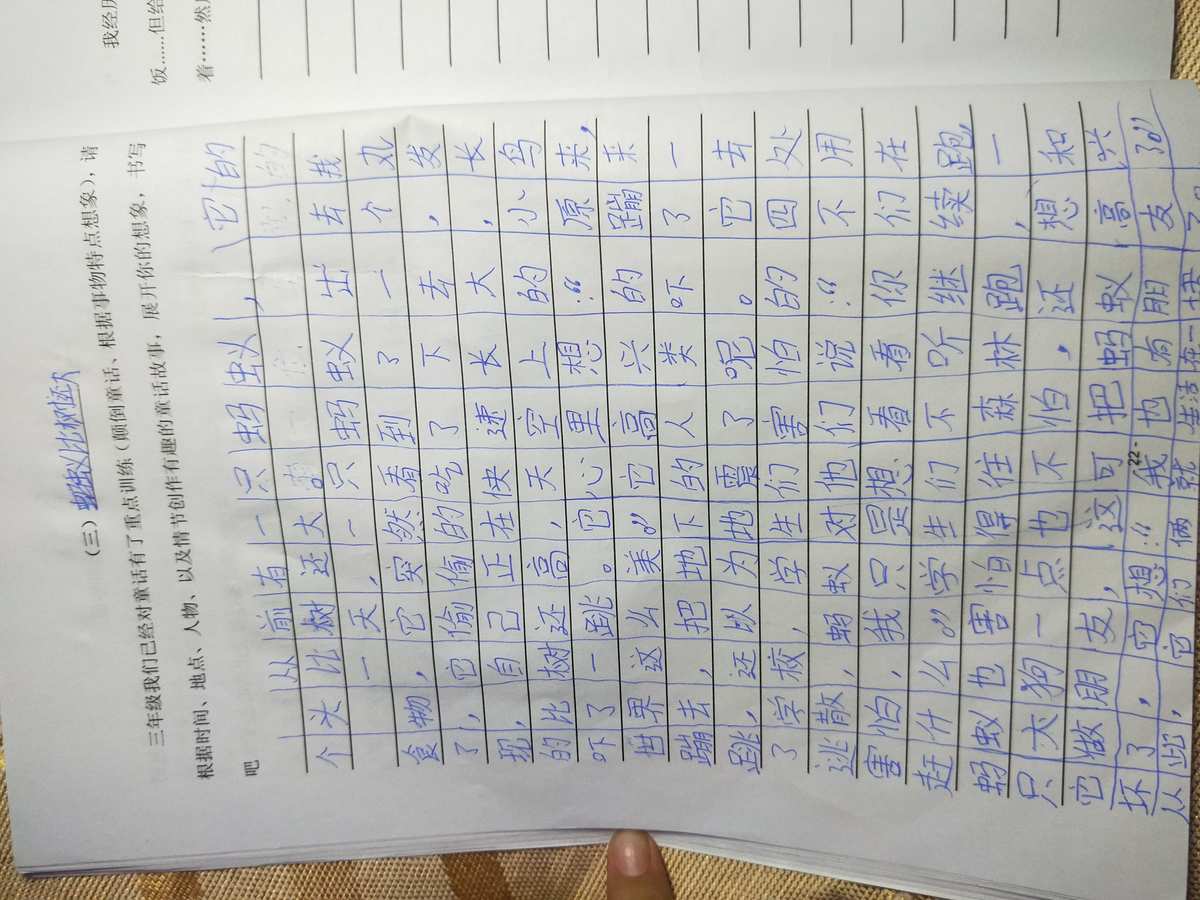 (三) 蚂蚁比树还大
三年级我们已经对童话有了重点训练(颠倒童话、根据事物特点想象),请
根据时间、地点、人物、以及情节创作有趣的童话故事,展开你的想象,书写
吧
从前有一只蚂蚁,它的
个头比树还大。
一天,一只蚂蚁出去找
食物,它突然看到了一个丸
了,它偷偷的吃了下去,发
现,自己正在快速长大,长
的比树还高,天空上的小鸟
吓了一跳。它心里想:“原来,
世界这么美。”它高兴的蹦来
蹦去,把地下的人类吓了一
跳,还以为地震了呢。它去
了学校,学生们害怕的四处
逃散,蚂蚁对他们说:“不用
害怕,我只是想看看你们在
赶什么。”学生们不听继续跑,
蚂蚁也害怕得往森林跑,一
只大狗一点也不怕,还想和
它做朋友,这可把蚂蚁高兴
坏了,它想:“我也有朋友了。”
从此,它们俩就生活在一起
22
我经历
饭……但给
着……然后